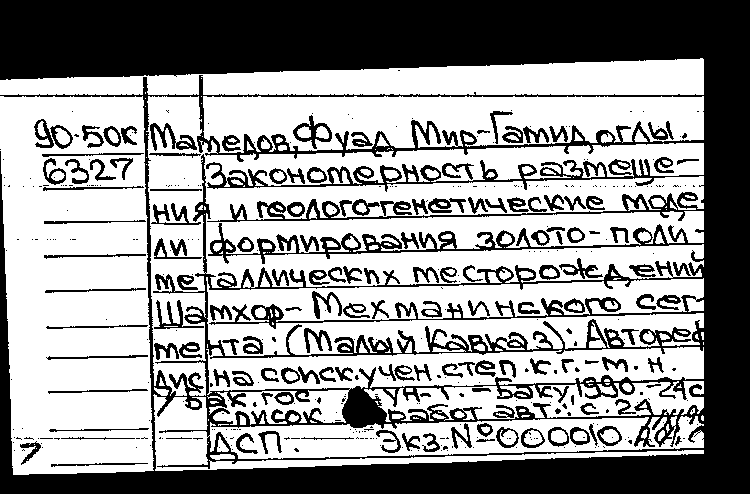 90-50к Мамедов, Фуад Мир-Гамид оглы.
6327 Закономерность размеще-
ния и геолого-генетические моде-
ли формирования золото-поли-
металлических месторождений
Шамхор-Мехманинского сег-
мента: (Малый Кавказ): Автореф
дис. на соиск. учен. степ. к.г.-м.н.
/ Бак. гос. ун-т. - Баку, 1990. - 24 с
Список работ авт.: с. 24
ДСП. Экз. № 000010.